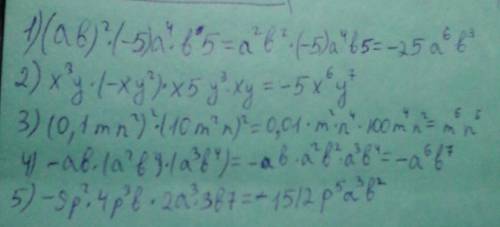 1) (ab)²·(-5)a⁴·b·5=a²b²·(-5)a⁴b5=-25a⁶b³
2) x³y·(-xy²)·x5y³·xy=-5x⁶y⁷
3) (0,1mn²)²·(10m²n)²=0,01·m²n⁴·100m⁴n²=m⁶n⁶
4) -ab·(a²b²)·(a³b⁴)=-ab·a²b²·a³b⁴=-a⁶b⁷
5) -9p²·4p³b·2a³·3b7=-1512p⁵a³b²